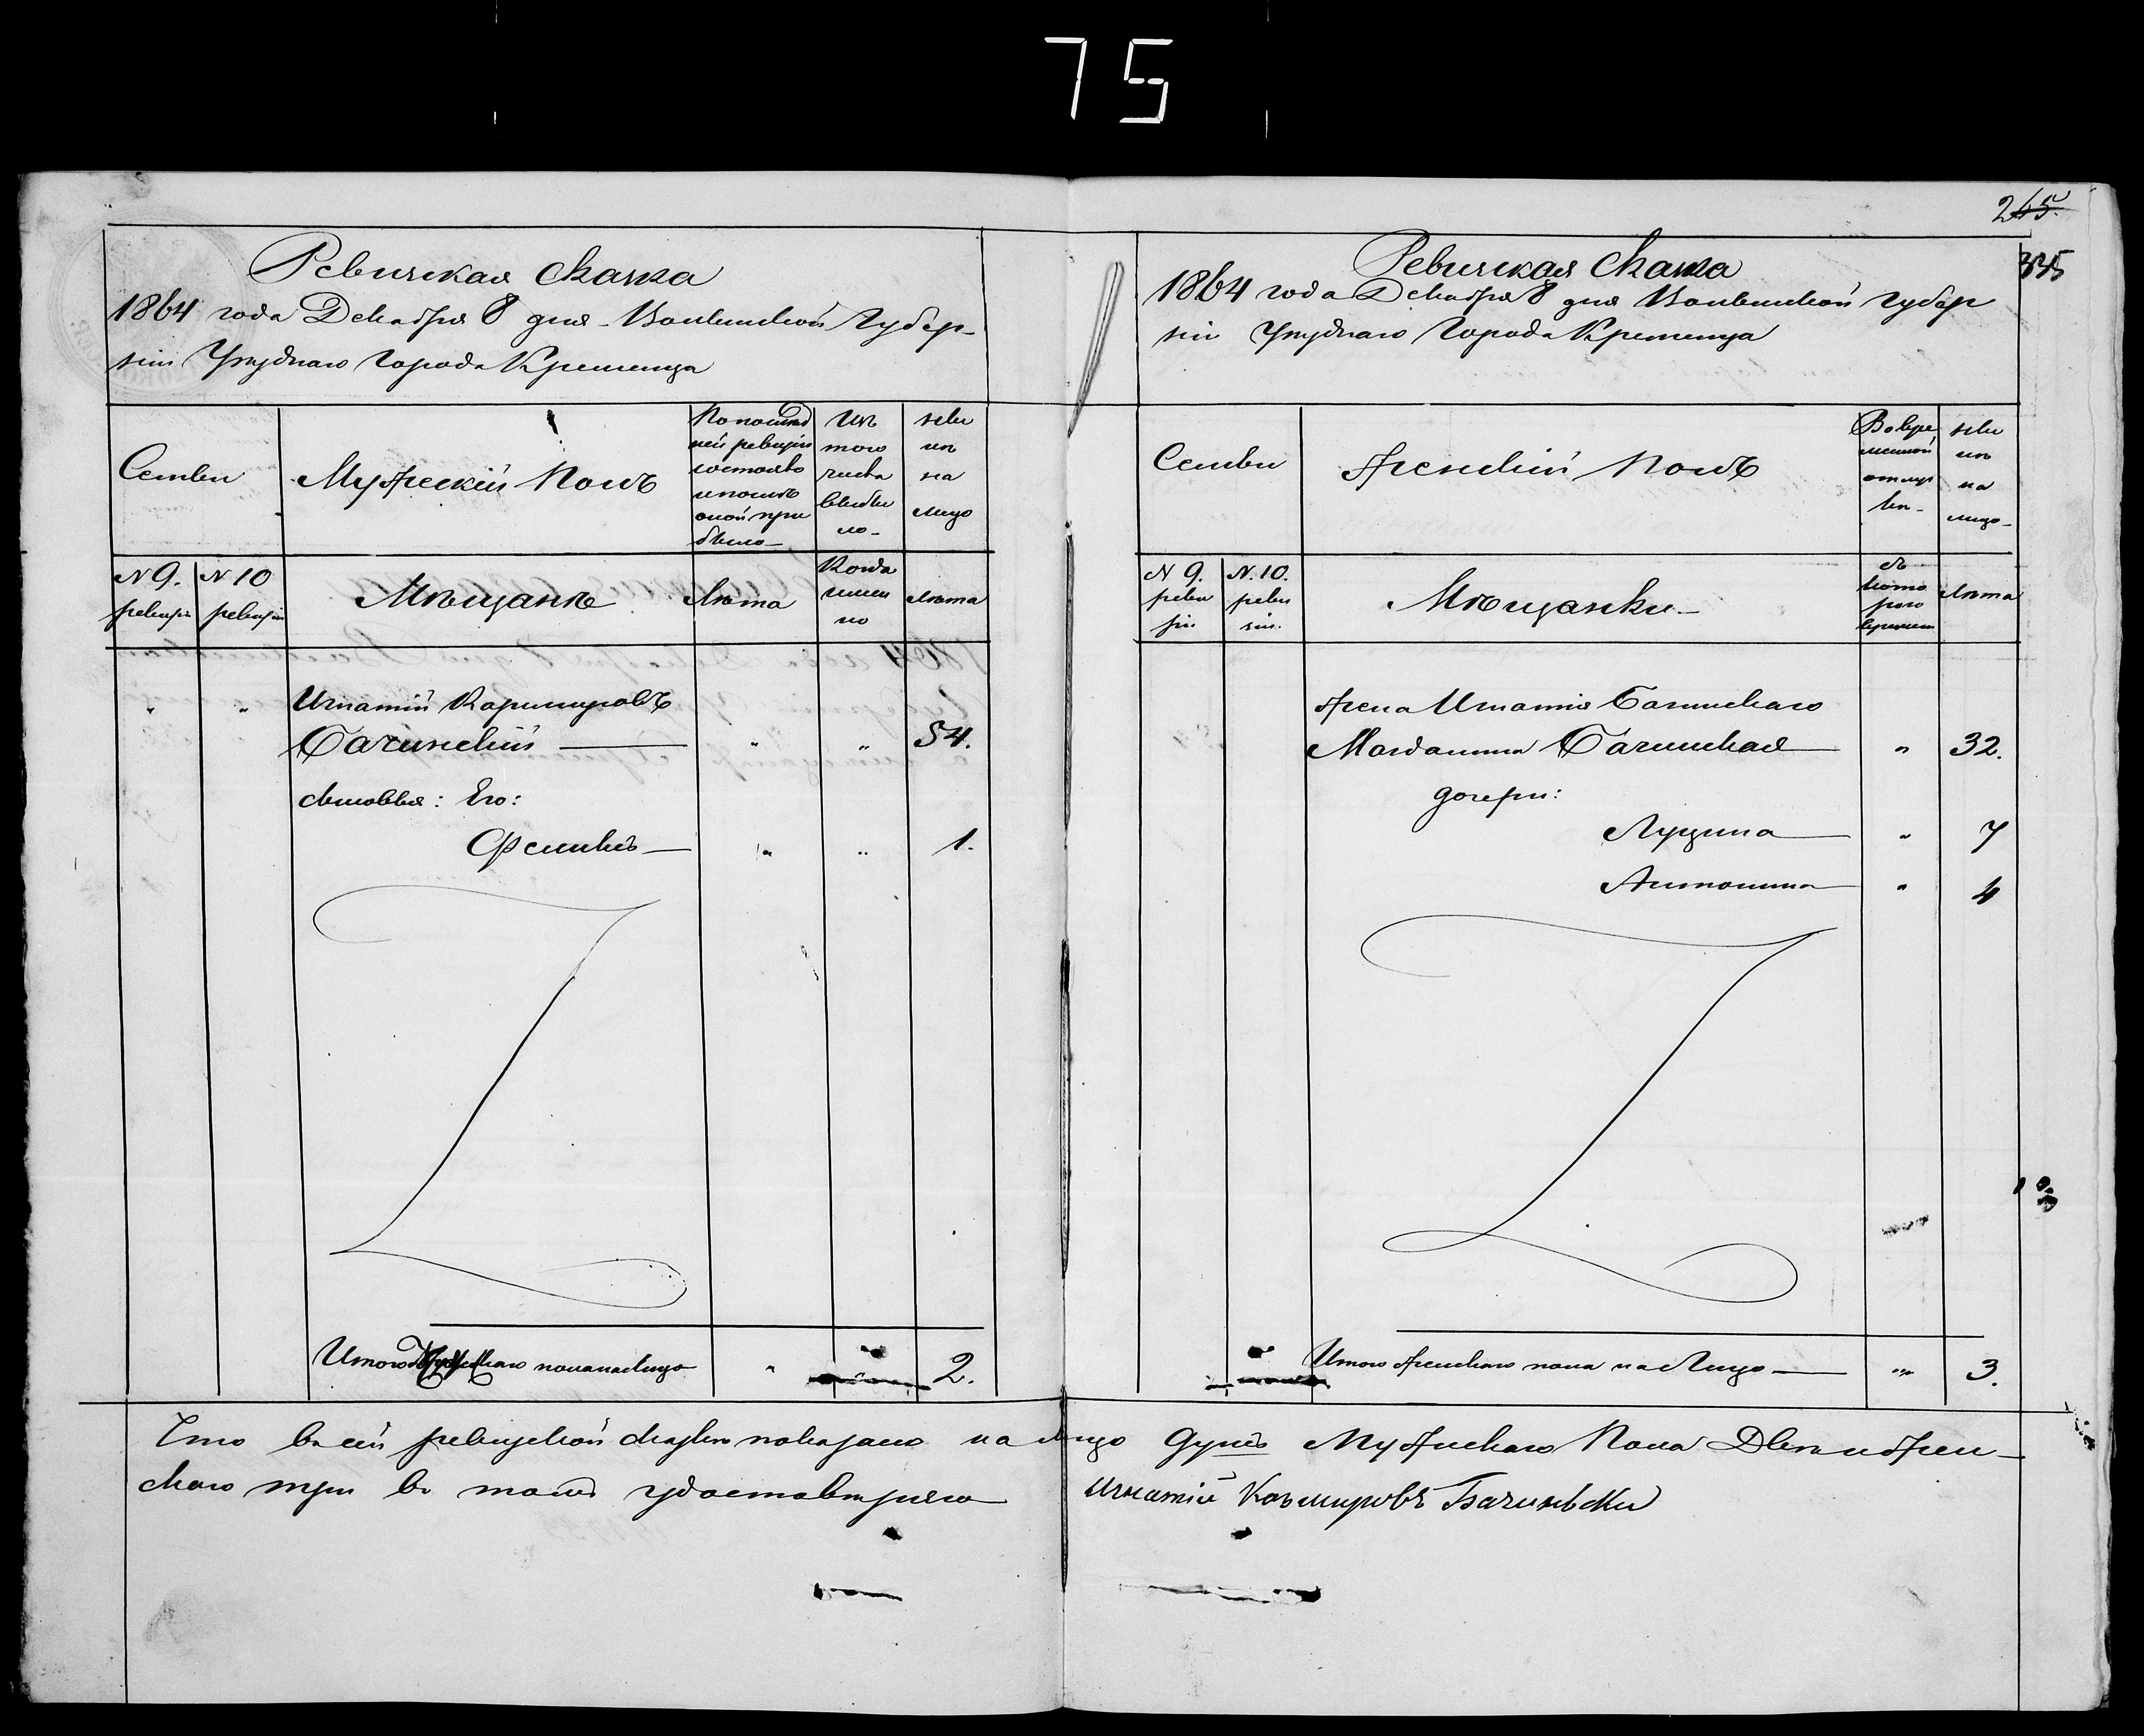 75
245.
335
Ревизская Сказка
1864 года Декабря 8 дня Волынской Губер-
ніи Уѣзднаго Города Кременца
Семьи
Мужескій Полъ
По послѣд
ней ревизіи
состояло
и послѣ
оной при
было
Изъ
того
числа
выбы
ло
Ныне
на
лицо
N 9.
ревизіи
N 10
ревизіи
Мѣщанъ
Лѣта
Когда
имен
но
Лѣта
Игнатій Казимировъ
Бачинскій
" " 54.
сыновья: Его:
Феликсъ
" " 1.
Итого Мужескаго пола на лицо " " 2.
Ревизская Сказка
1864 года Декабря 8 дня Волынской Губер
ніи Уѣзднаго Города Кременца
Семьи
Женскій Полъ
Во вре
менной
отлуч
кѣ
на
лицо
N 9.
реви
зіи
N. 10.
реви
зіи.
Мѣщанки
Съ
кото
раго
времени
Лѣта
Жена Игнатія Бачинскаго
Магдалина Бачинская " 32.
дочери:
Луцина " 7
Антонина " 4
Итого женскаго пола на Лицо " 3.
Что въ сей ревизской сказкѣ показано на лицо душъ Мужескаго Пола Двѣ и Жен-
скаго три въ томъ удостовѣряю Игнатій Казмировъ Бачиньски